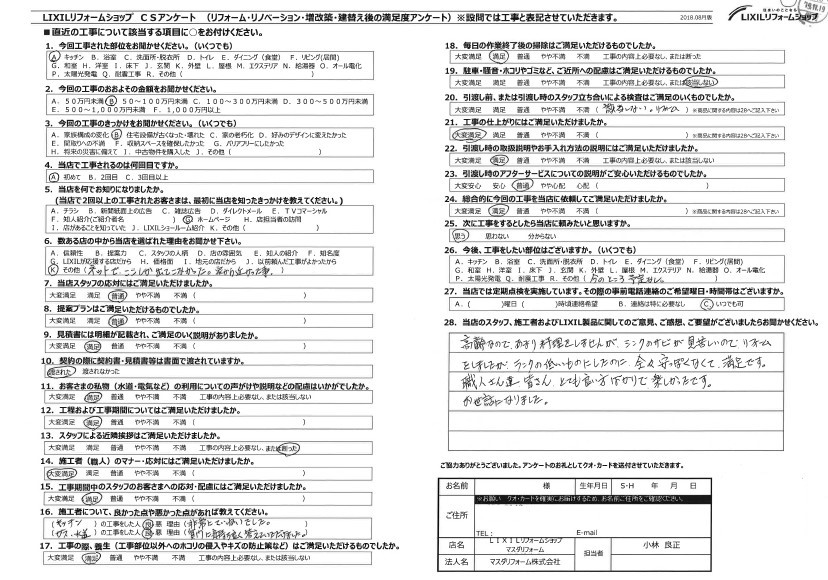 LIXILリフォームショップ CSアンケート (リフォーム・リノベーション・増改築・建替え後の満足度アンケート) ※設問では工事と表記させていただきます。
2018.08月版
LIXILリフォームショップ
■直近の工事について該当する項目に○をお付けください。
1．今回工事された部位をお聞かせください。（いくつでも）
A．キッチン B．浴室 C．洗面所・脱衣所 D．トイレ E．ダイニング（食堂） F．リビング（居間）
G．和室 H．洋室 I．床下 J．玄関 K．外壁 L．屋根 M．エクステリア N．給湯器 O．オール電化
P．太陽光発電 Q．耐震工事 R．その他（ ）
2．今回の工事のおおよその金額をお聞かせください。
A．５０万円未満 B．５０～１００万円未満 C．１００～３００万円未満 D．３００～５００万円未満
E．５００～１,０００万円未満 F．１,０００万円以上
3．今回の工事のきっかけをお聞かせください。（いくつでも）
A．家族構成の変化 B．住宅設備が古くなった・壊れた C．家の老朽化 D．好みのデザインに変えたかった
E．間取りへの不満 F．収納スペースを確保したかった G．バリアフリーにしたかった
H．将来の災害に備えて I．中古物件を購入した J．その他（ ）
4．当店で工事されるのは何回目ですか。
A．初めて B．2回目 C．3回目以上
5．当店を何でお知りになりましたか。
（当店で２回以上の工事されたお客さまは、最初に当店を知ったきっかけを教えてください。）
A．チラシ B．新聞紙面上の広告 C．雑誌広告 D．ダイレクトメール E．ＴＶコマーシャル
F．知人紹介（ご紹介者名 ） G．ホームページ H．店担当者の訪問
I．店があることを知っていた J．LIXILショールーム紹介 K．その他（ ）
6．数ある店の中から当店を選ばれた理由をお聞かせ下さい。
A．信頼性 B．提案力 C．スタッフの人柄 D．店の雰囲気 E．知人の紹介 F．知名度
G．LIXILが応援する店だから H．価格面 I．地元の店だから J．以前頼んだ工事がよかったから
K．その他（
7．当店のスタッフの応対にはご満足いただけましたか。
大変満足 満足 普通 やや不満 不満 （ ）
8．提案プランはご満足いただけるものでしたか。
大変満足 満足 普通 やや不満 不満 （ ）
9．見積書には明細が記載され、ご満足のいく説明がありましたか。
大変満足 満足 普通 やや不満 不満 （ ）
10．契約の際に契約書・見積書等は書面で渡されていますか。
渡された 渡されなかった
11．お客さまの私物（水道・電気など）の利用についての声がけや説明などの配慮はいかがでしたか。
大変満足 満足 普通 やや不満 不満 工事の内容上必要なし、または該当なし
12．工程および工事期間についてはご満足いただけましたか。
大変満足 満足 普通 やや不満 不満 （ ）
13．スタッフによる近隣挨拶はご満足いただけましたか。
大変満足 満足 普通 やや不満 不満 工事の内容上必要なし、または断った
14．施工者（職人）のマナー・応対にはご満足いただけましたか。
大変満足 満足 普通 やや不満 不満 （ ）
15．工事期間中のスタッフのお客さまへの応対・配慮にはご満足いただけましたか。
大変満足 満足 普通 やや不満 不満 （ ）
16．施工者について、良かった点や悪かった点があれば教えてください。
（キッチン ）の工事をした人 良 悪 理由（
（ガス、水道 ）の工事をした人 良 悪 理由（
17．工事の際、養生（工事部位以外へのホコリの侵入やキズの防止策など）はご満足いただけるものでしたか。
大変満足 満足 普通 やや不満 不満 工事の内容上必要なし、または該当なし
18．毎日の作業終了後の掃除はご満足いただけるものでしたか。
大変満足 満足 普通 やや不満 不満 工事の内容上必要なし、または断った
19．駐車・騒音・ホコリやゴミなど、ご近所への配慮はご満足いただけるものでしたか。
大変満足 満足 普通 やや不満 不満 工事の内容上必要なし、または該当なし
20．引渡し前、または引渡し時のスタッフ立ち合いによる検査はご満足のいくものでしたか。
大変満足 満足 普通 やや不満 不満 （ ）※商品に関する内容は28へご記入下さい
21．工事の仕上がりにはご満足いただけましたか。
大変満足 満足 普通 やや不満 不満 （ ）※商品に関する内容は28へご記入下さい
22．引渡し時の取扱説明やお手入れ方法の説明にはご満足いただけましたか。
大変満足 満足 普通 やや不満 不満 工事の内容上必要なし、または該当なし
23．引渡し時のアフターサービスについての説明がご安心いただけるものでしたか。
大変安心 安心 普通 やや心配 心配 （ ）
24．総合的に今回の工事を当店に依頼してご満足いただけましたか。
大変満足 満足 普通 やや不満 不満 （ ）※商品に関する内容は28へご記入下さい
25．次に工事をするとしたら当店に頼みたいと思いますか。
思う 思わない 分からない
26．今後、工事をしたい部位はございますか。（いくつでも）
A．キッチン B．浴室 C．洗面所・脱衣所 D．トイレ E．ダイニング（食堂） F．リビング（居間）
G．和室 H．洋室 I．床下 J．玄関 K．外壁 L．屋根 M．エクステリア N．給湯器 O．オール電化
P．太陽光発電 Q．耐震工事 R．その他（今のところ予定なし
27．当店では定期点検を実施しています。その際の事前電話連絡のご希望曜日・時間帯はございますか。
A．（ ）曜日（ ）時頃連絡希望 B．連絡は特に必要なし C．いつでも可
28．当店のスタッフ、施工者およびLIXIL製品に関してのご意見、ご感想、ご要望がございましたらお聞かせください。
高齢なので、あまり料理をしませんが、シンクのサビが見苦しいのでリフォーム
をしましたが、ランクの低いものにしたのに、全々安っぽくなくて、満足です。
職人さん達、皆さん、とても良い方ばかりで楽しかったです。
お世話になりました。
ご協力ありがとうございました。アンケートのお礼としてクオ・カードを送付させていただきます。
お名前 様 生年月日 S・H 年 月 日
※お願い クオ・カードを確実にお届けするため、お名前ご住所をご確認ください。
ご住所
TEL： E-mail
店名 ＬＩＸＩＬリフォームショップ マスダリフォーム 担当者 小林 良正
法人名 マスダリフォーム株式会社